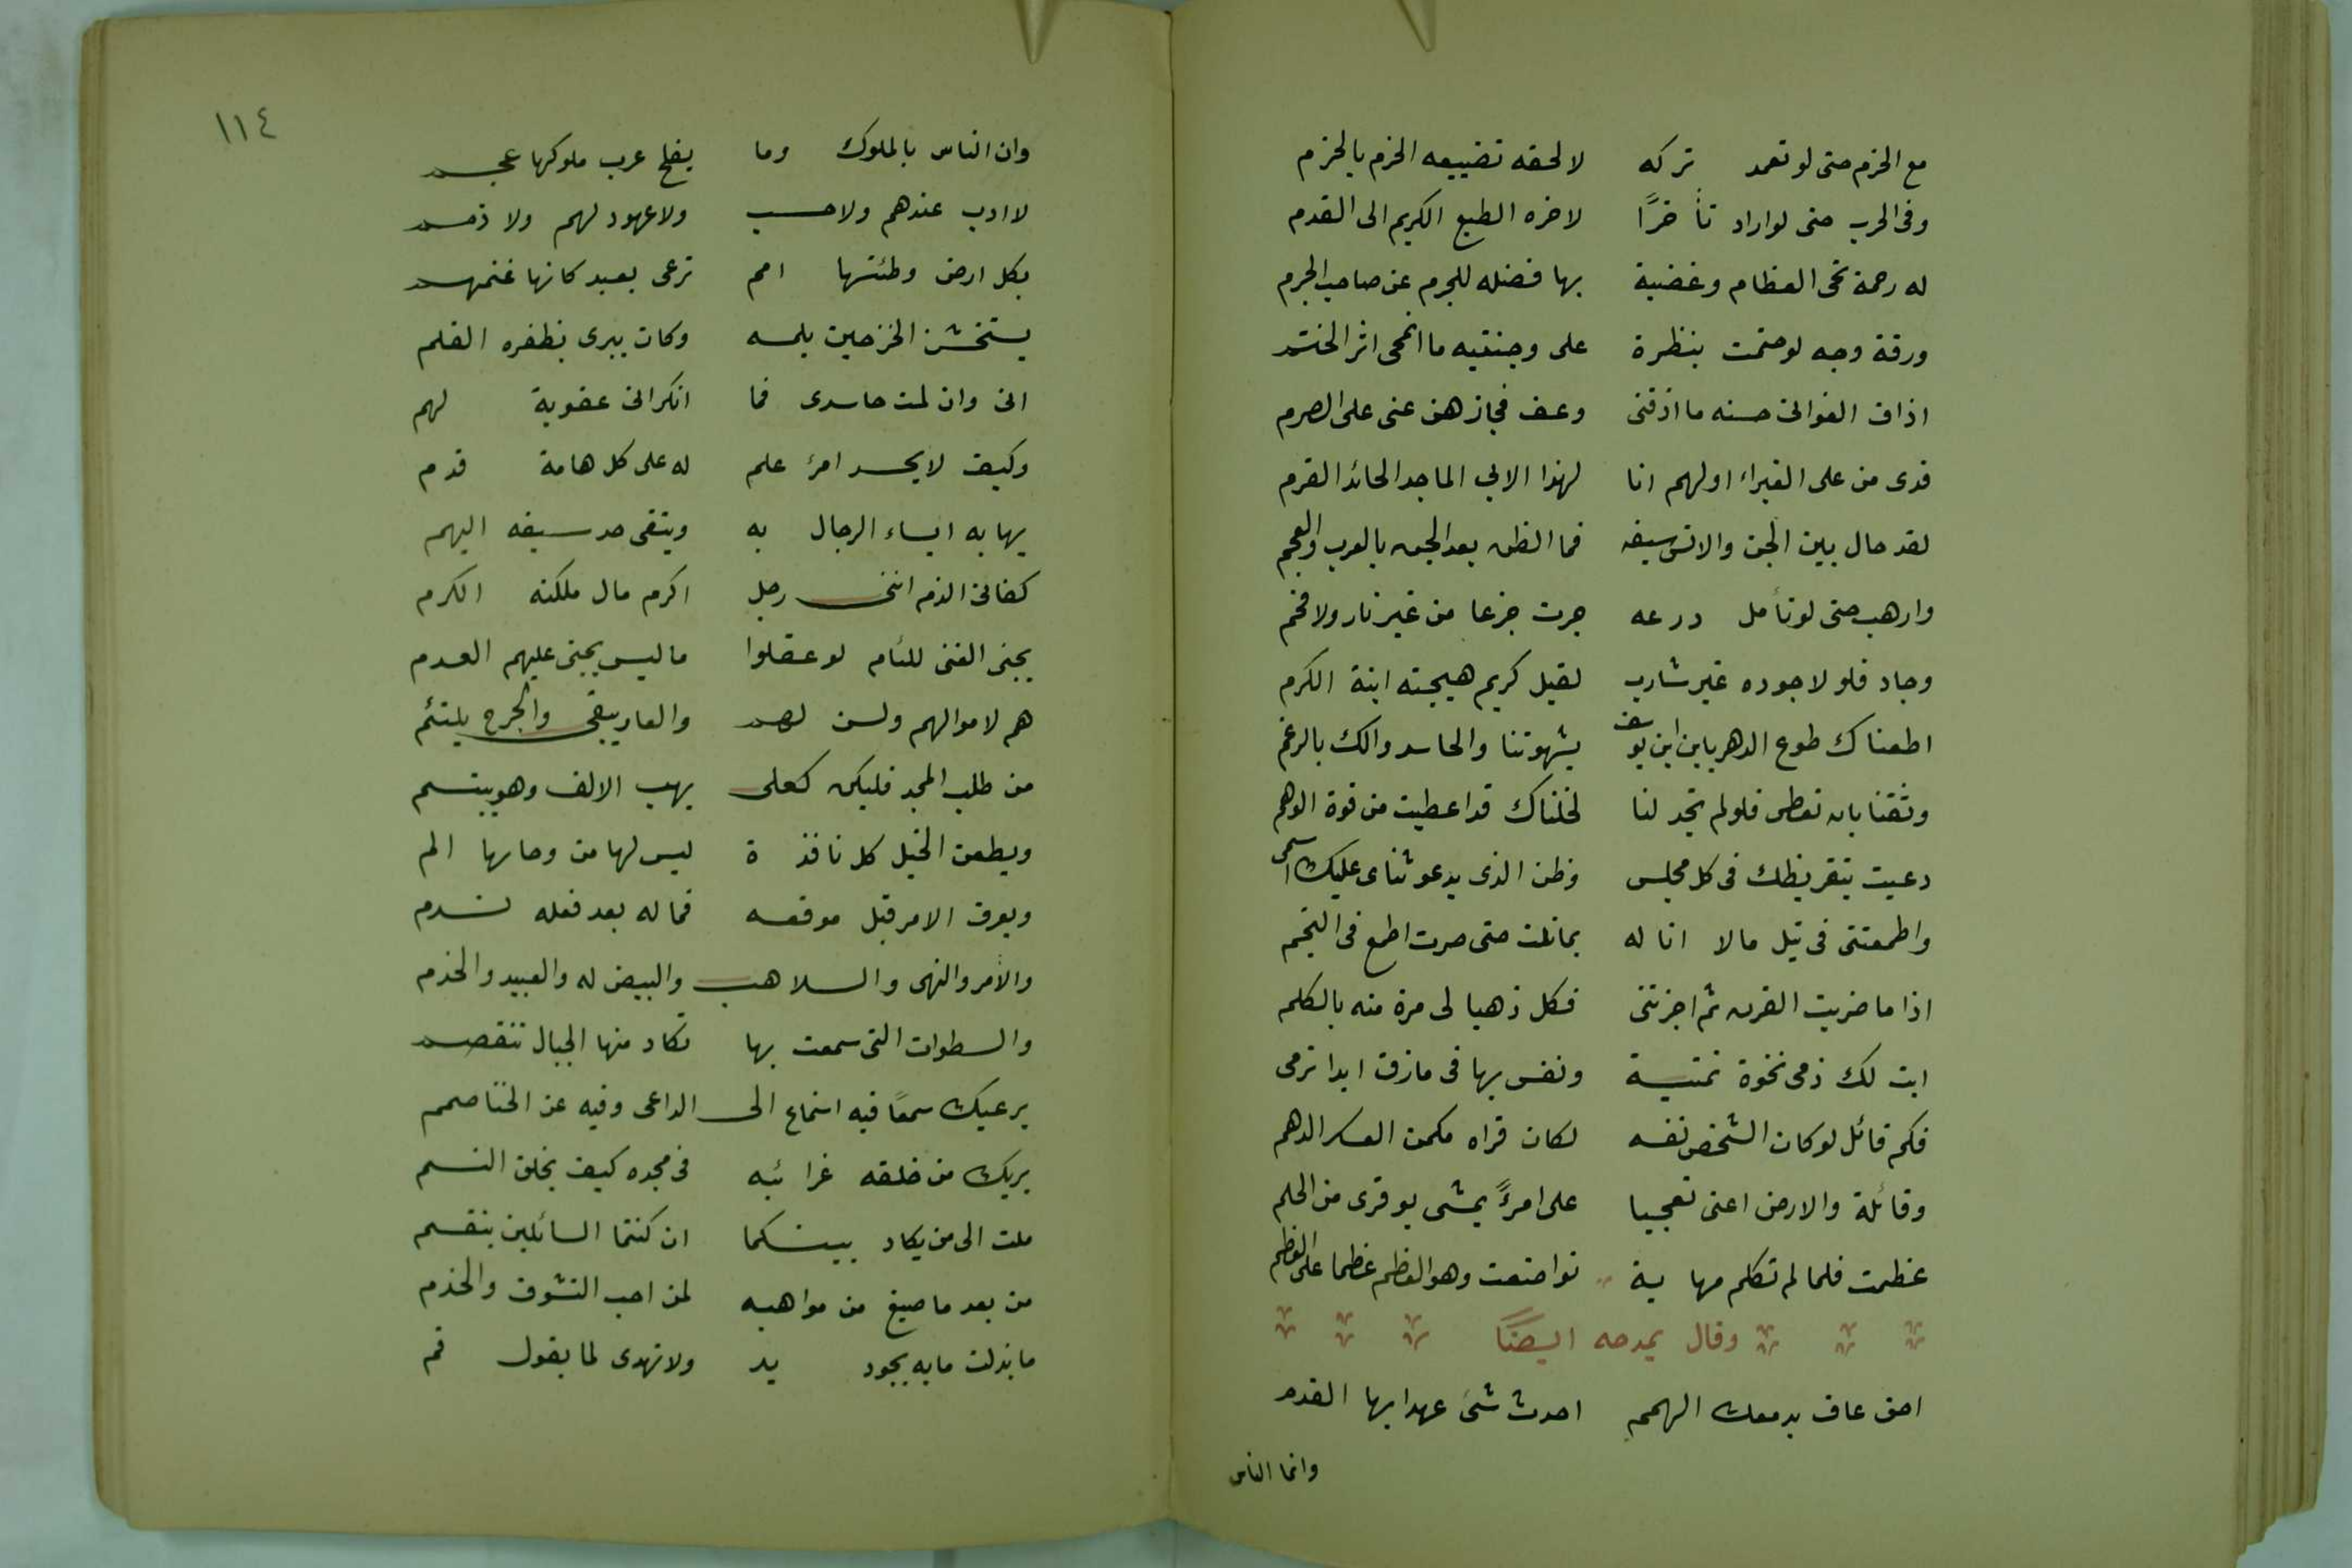 مع الحزم حتى لو تعمد تركه لالحقه تضييعه الحزم بالحزم
وفى الحرب حتى لو اراد تأخرًا لاخره الطبع الكريم الى القدم
له رحمة تحى العظام وغضبة بها فضله للجرم عن صاحب الجرم
ورقة وجه لو ختمت بنظرة على وجنتيه ما انمحى اثر الختم
اذاق الغوانى حسنه ما اذقنى وعف فجازهن عنى على الصرم
فدى من على الغبراء اولهم انا لهذا الابى الماجد الحائد القرم
لقد حال بين الجن والانس سيفه فما الظن بعد الجن بالعرب والعجم
وارهب حتى لو تأمل درعه جرت جزعا من غير نار ولا فحم
وجاد فلولا جوده غير شارب لقيل كريم هيجته ابنة الكرم
اطعناك طوع الدهر يابن ابن يوسف بشهوتنا والحاسدوالك بالرغم
وثقنا بان تعطى فلو لم تجد لنا لخلناك قد اعطيت من قوة الوهم
دعيت بتقريظك فى كل مجلس وظن الذى يدعو ثناى عليك اسمى
واطمعتنى فى نيل مالا اناله بمانلت حتى صرت اطمع فى النجم
اذا ما ضربت القرن ثم اجزتنى فكل ذهبا لى مرة منه بالكلم
ابت لك ذمى نخوة نمتية ونفس بها فى مازق ابدا ترمى
فكم قائل لو كان الشخص نفسه لكان قراه مكمن العسكر الدهم
وقائلة والارض اعنى تعجبا على امرؤ يمشى بوقرى من الحلم
عظمت فلما لم تكلم مهابة تواضعت وهو العظم عظما على العظم
وقال يمدحه ايضًا
احق عاف بدمعك الهمم احدث شئ عهدا بها القدم
وانما الناس
١١٤
وان الناس بالملوك وما يفلح عرب ملوكها عجم
لا ادب عندهم ولا حسب ولا عهود لهم ولا ذمم
بكل ارض وطئتها امم ترعى بعبد كانها غنم
يستخشن الخز حين يلمسه وكان يبرى بظفره القلم
انى وان لمت حاسدى فما انكر انى عقوبة لهم
وكيف لا يحسد امرؤ علم له على كل هامة قدم
يهابه ابساء الرجال به ويتقى حد سيفه البهم
كفانى الذم اننى رجل اكرم مال ملكته الكرم
يجنى الغنى للئام لو عقلوا ما ليس يجنى عليهم العدم
هم لاموالهم ولسن لهم والعار يبقى والجرح يلتئم
من طلب المجد فليكن كعلى يهب الالف وهو يبتسم
ويطعن الخيل كل نافذة ليس لها من وحاىها الم
ويعرف الامر قبل موقعه فما له بعد فعله ندم
والأمر والنهى والسلاهب والبيض له والعبيد والخدم
والسطوات التى سمعت بها تكاد منها الجبال تنقصم
يرعيك سمعًا فيه استماع الى الداعى وفيه عن الخنا صمم
يريك من خلقه غرائبه فى مجده كيف يخلق النسم
ملت الى من يكاد بينكما ان كنتما السائلين ينقسم
من بعد ما صيغ من مواهبه لمن احب الشنوف والخدم
ما بذلت ما به يجود يد ولا تهدى لما يقول فم